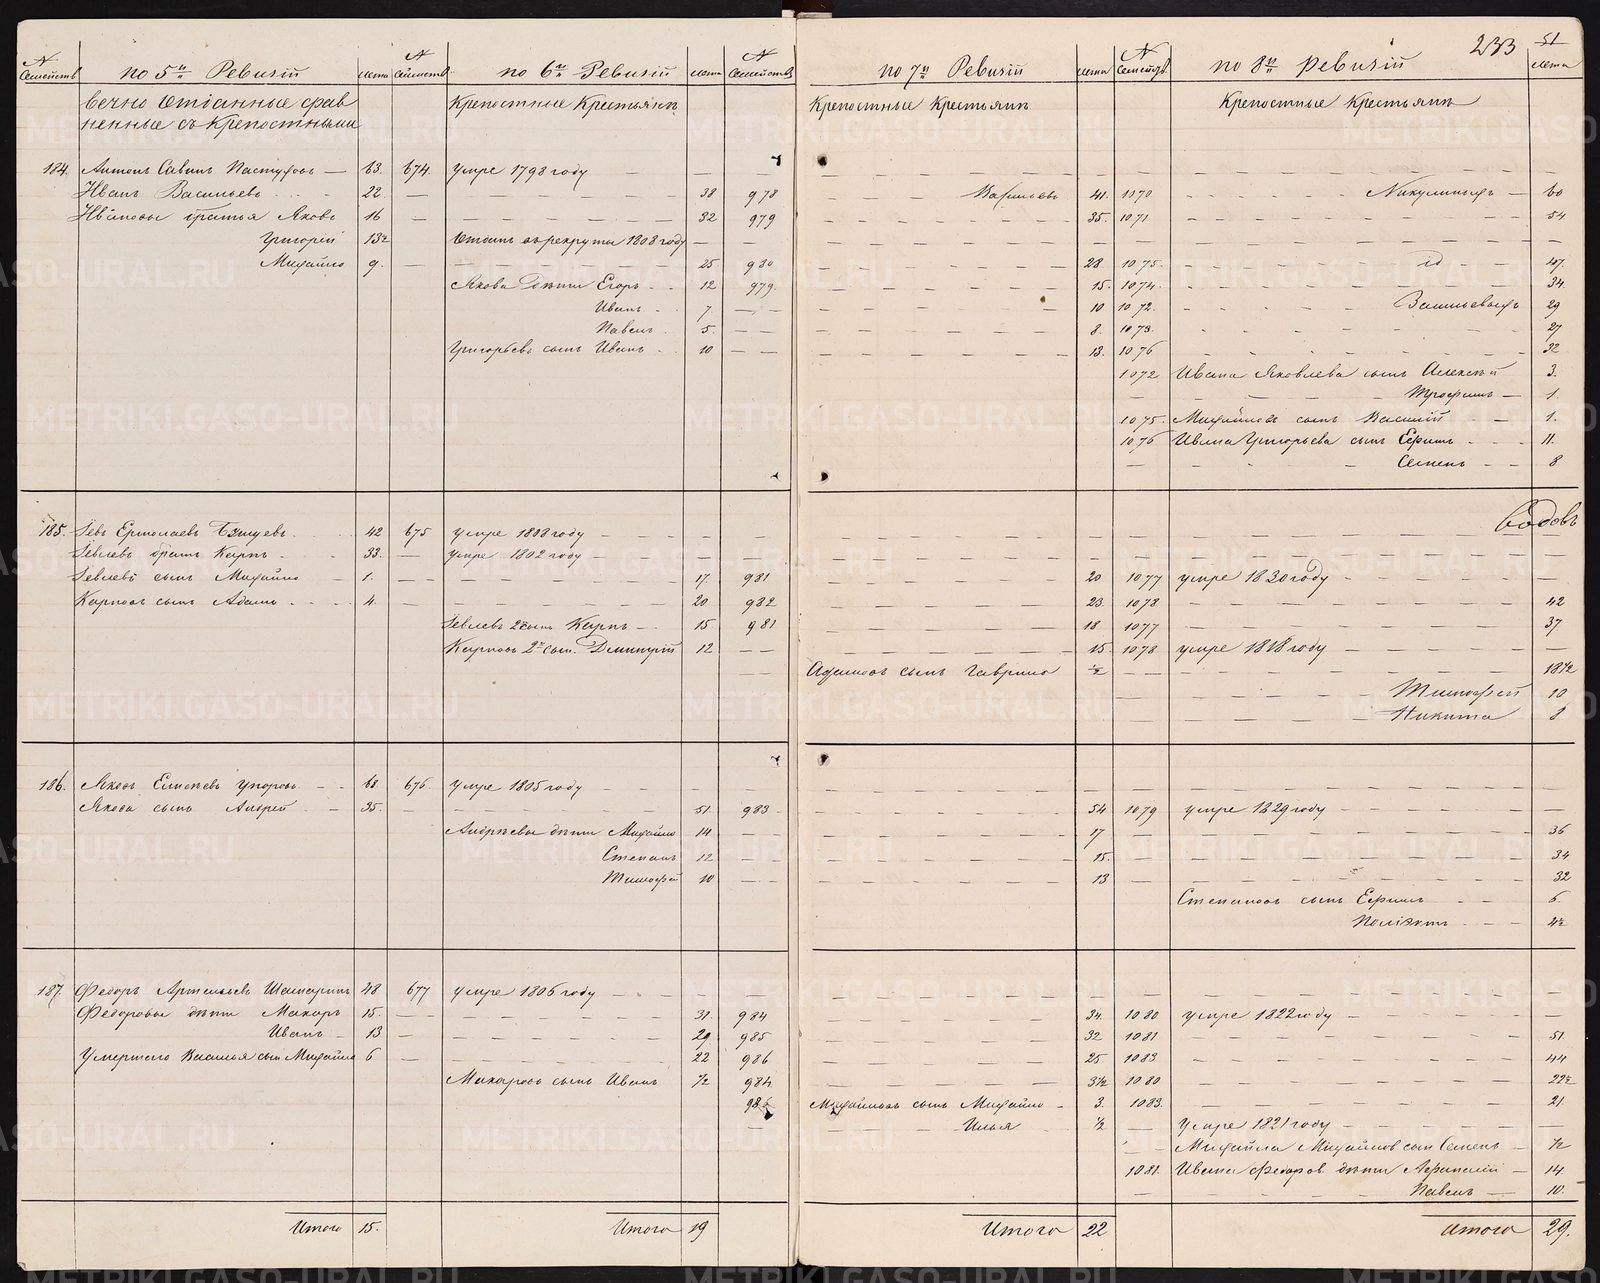 233
51
№ Семействъ
по 5й Ревизіи
лета
№ Семействъ
по 6й Ревизіи
лета
№ Семействъ
по 7й Ревизіи
лета
№ Семействъ
по 8й Ревизіи
лета
вечно Отданные срав
ненные съ Крепостными
Крепостные Крестьянѣ
Крепостные Крестьянѣ
Крепостные Крестьянѣ
184. Антонъ Савинъ Пастуховъ — 63. 674. умре 1798 году
Иванъ Васильевъ 22. 38 978 Васильевъ 41. 1070 60
Ивановы братья Яковъ 16 32 979 35. 1071 54
Григорей 13½ Отданъ въ рекруты 1808 году
Михайло 9. 25 980 28. 1075. 47.
Якова дѣти Егоръ 12 979. 15. 1074. 34.
Иванъ 7 10 1072. Васильевыхъ 29
Павелъ 5. 8. 1073. 27
Григорьевъ сынъ Иванъ 10 13. 1076 32
1072 Ивана Яковлева сынъ Алексѣй 3.
Трофимъ 1.
1075. Михайловъ сынъ Василій 1.
1076 Ивана Григорьева сынъ Ефимъ 11.
Семенъ 8
185. Левъ Ермолаевъ 42 675 умре 1808 году
Левлевъ братъ Карпъ 33. умре 1802 году
Левлевъ сынъ Михайло 1. 17. 981 20 1077 умре 1830 году
Карповъ сынъ Адамъ 4. 20 982 23. 1078 42
Левлевъ 2й сынъ Карпъ 15 981 18 1077 37
Карповъ 2й сын. Дмитрій 12 15. 1078 умре 1818 году
Адамовъ сынъ Гаврило ½ 18½
Тимофей 10
Никита 8
186. Яковъ Елисѣевъ Упоровъ 68 676 умре 1805 году
Якова сынъ Андрей 35. 51. 983 54 1079 умре 1829 году
Андрѣевы дѣти Михайло 14 17 36
Степанъ 12 15. 34
Тимофей 10 13 32
Степановъ сынъ Ефимъ 6
187. Федоръ Артемьевъ 48 677 умре 1806 году
Федоровы дѣти Макаръ 15. 31. 984 34. 1080 умре 1822 году
Иванъ 13 29 985 32 1081 51
Умершего Василья сын Михайло 6 22 986 25. 1083 44
Макаровъ сынъ Иванъ ½ 984 3½ 1080 22½
986 Михайловъ сынъ Михайло 3. 1083. 21.
Илья ½ умре 1821 году
Михайла Михайлов сын Семенъ ½
1081. Ивана Федоров дѣти Афанасій 14.
Павелъ 10.
Итого 15.
Итого 19
Итого 22
Итого 29.
METRIKI.GASO-URAL.RU